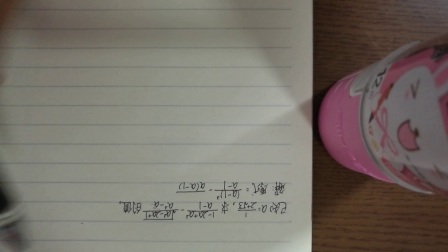 已知 a=1/(2+√3), 求 (1-2a+a²)/(a-1) - √(a²-2a+1)/(a²-a) 的值.
解: 原式 = (a-1)²/(a-1) - /a(a-1)